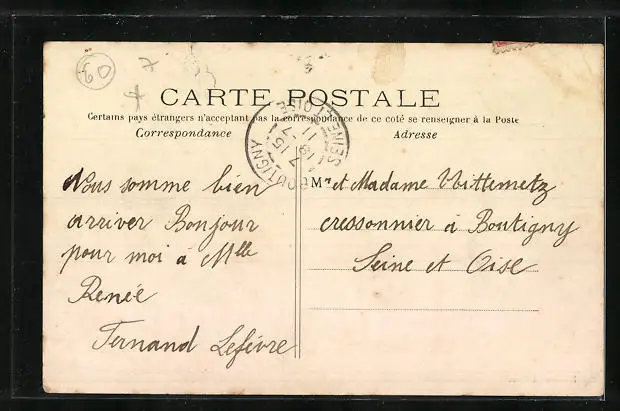 60
CARTE POSTALE
Certains pays étrangers n'acceptant pas la correspondance de ce coté se renseigner à la Poste
Correspondance
Adresse
BOUTIGNY
SEINE ET OISE
Nous somme bien
arriver Bonjour
pour moi a Mlle
Renée
Fernand Lefévre
Mr et Madame Wittemetz
cressonnier à Boutigny
Seine et Oise